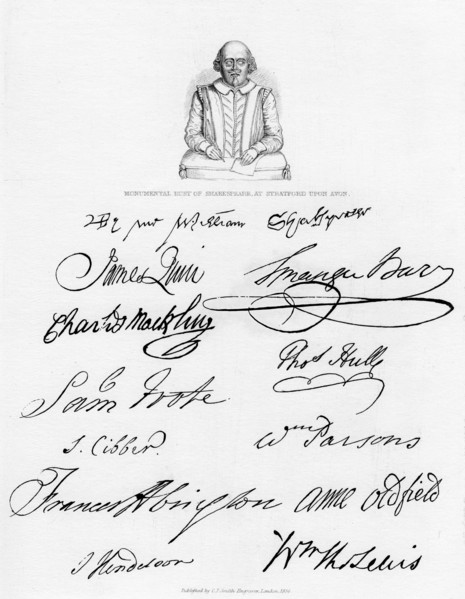 MONUMENTAL BUST OF SHAKESPEARE, AT STRATFORD UPON AVON.
By me William Shakspeare
James Quin
Spranger Barry
Charles Macklin
Thos Hull
Sam Foote
S. Cibber.
Wm Parsons
Frances Abington
anne oldfield
J Henderson
Wm Tho Lewis
Published by C. J. Smith, Engraver, London.